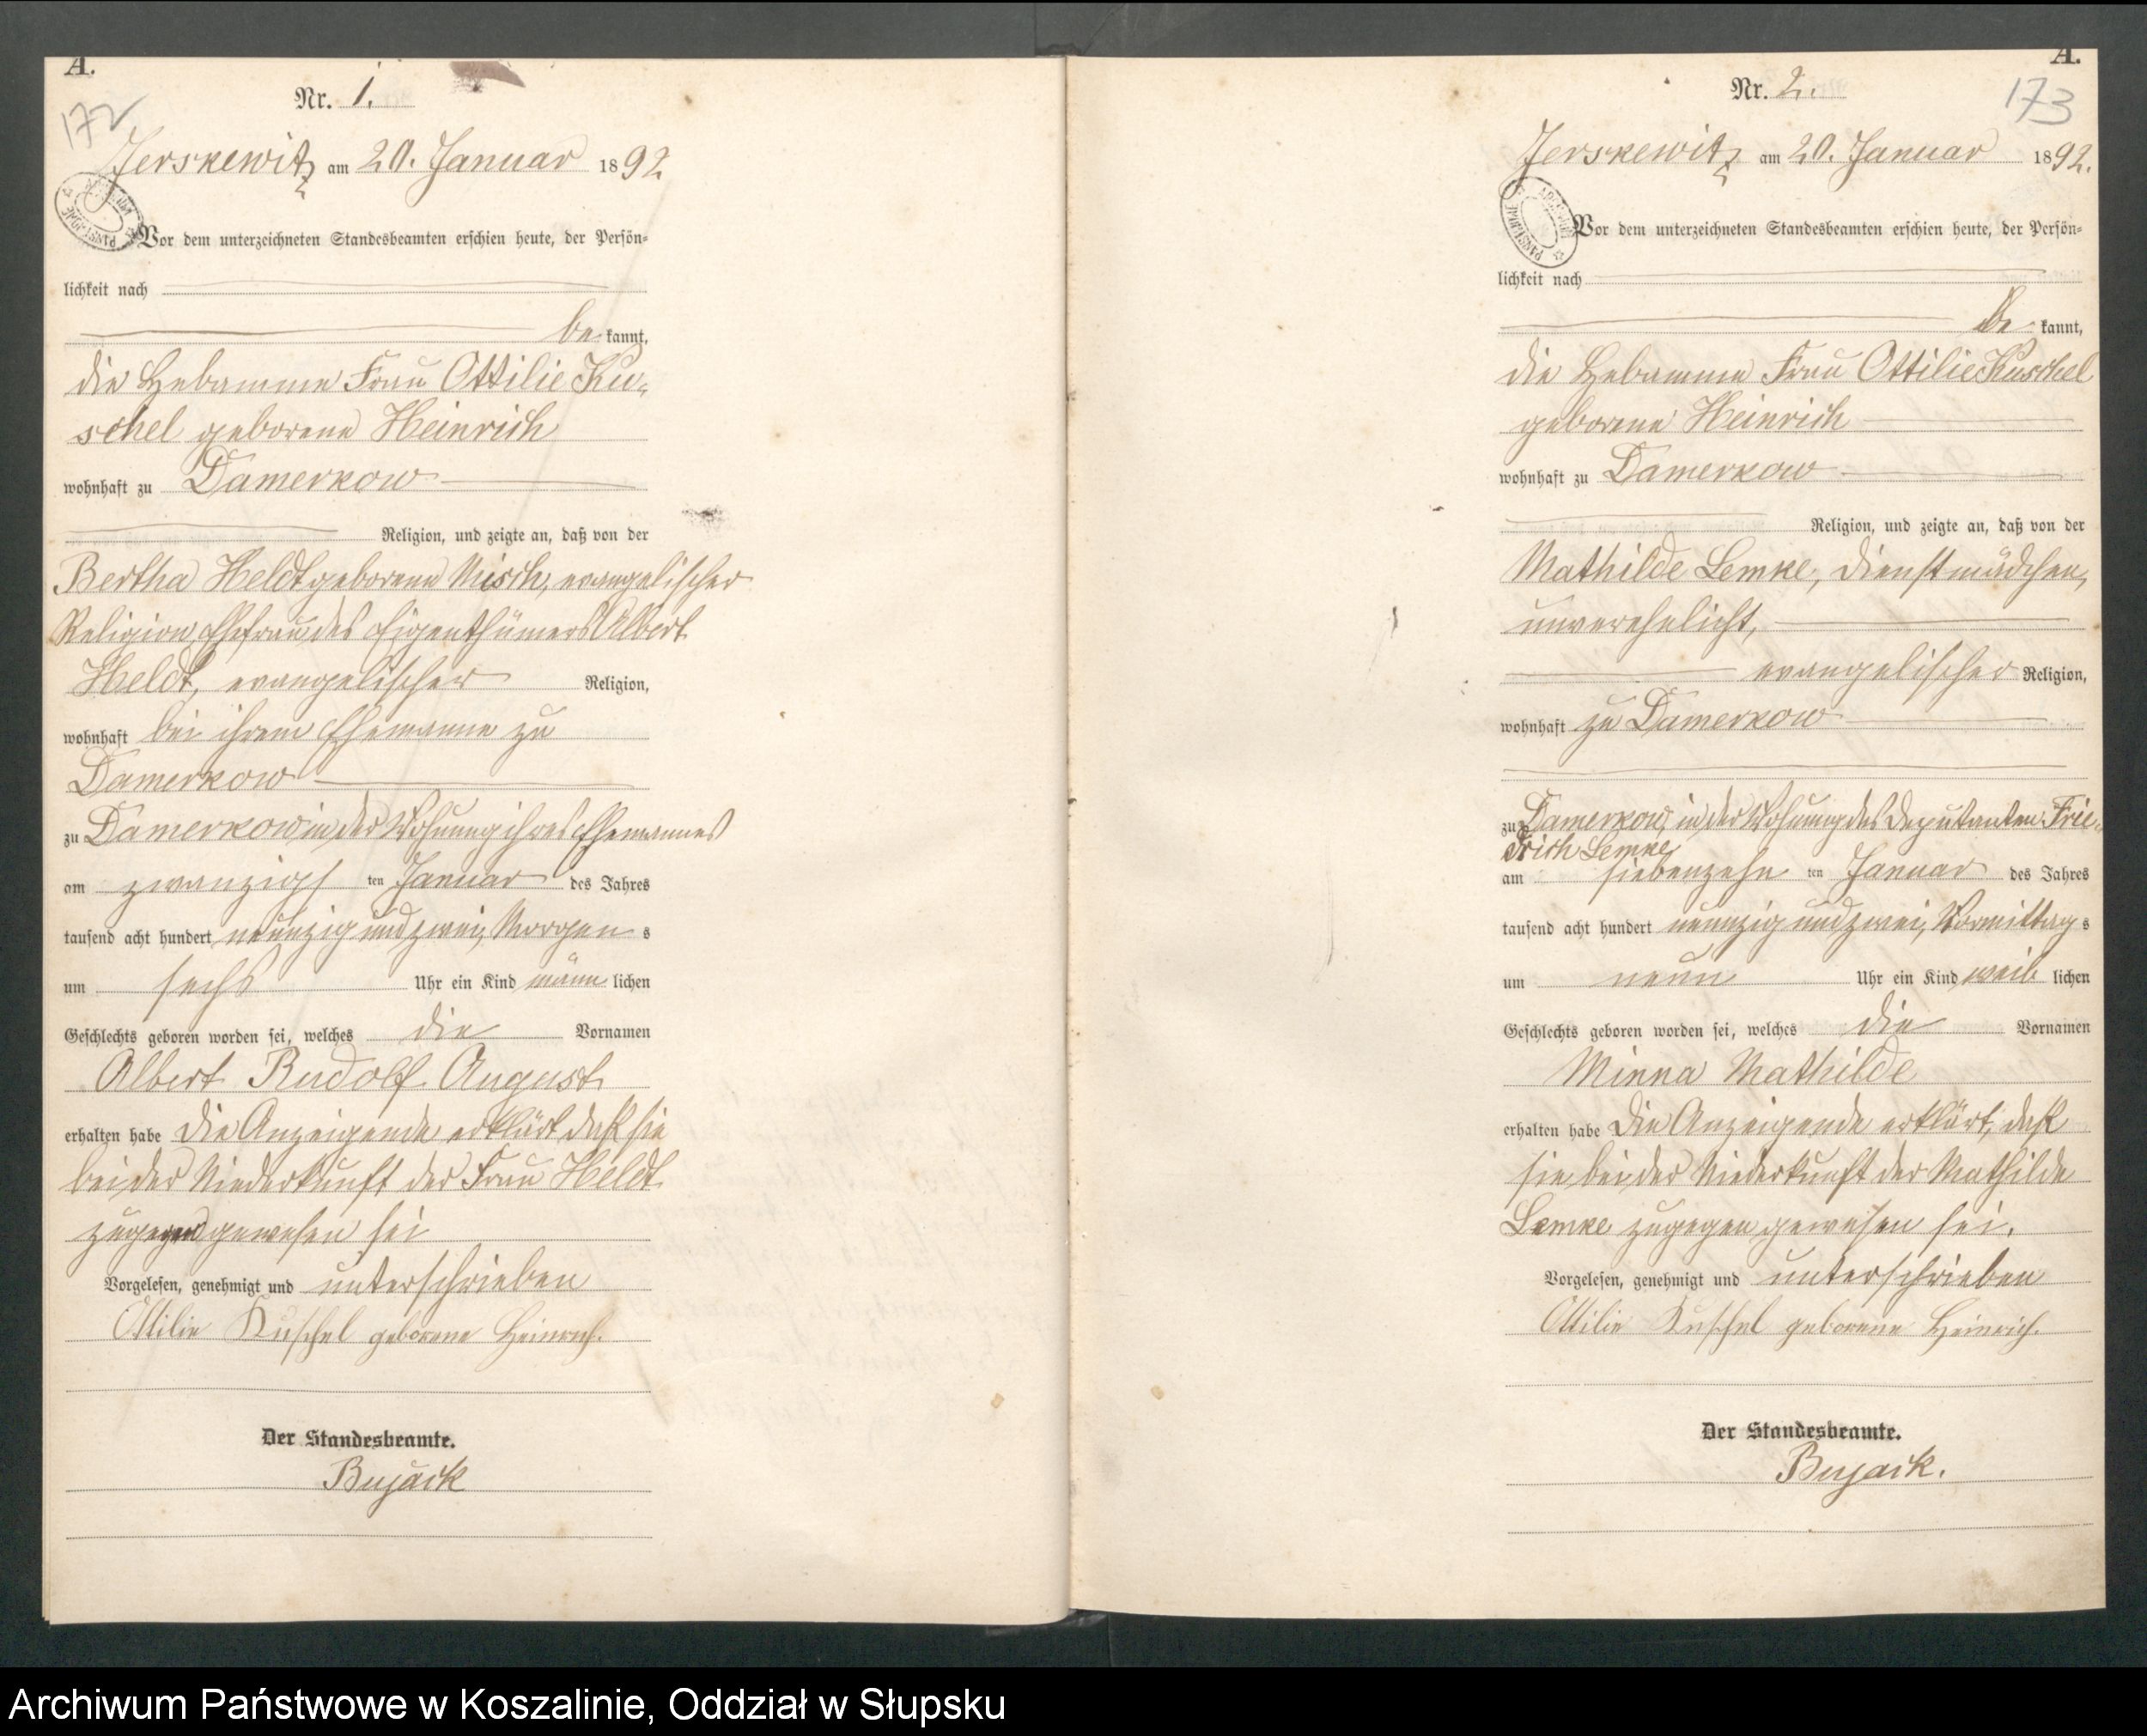 A.
172
Nr. 1.
Jerskewitz am 20. Januar 1892
Vor dem unterzeichneten Standesbeamten erschien heute, der Persön-
lichkeit nach
be kannt,
die Hebamme Frau Ottilie Ku-
schel geborene Heinrich
wohnhaft zu Damerkow
Religion, und zeigte an, daß von der
Bertha Heldt geborene Misch, evangelischer
Religion, Ehefrau des Eigenthümers Albert
Heldt, evangelischer Religion,
wohnhaft bei ihrem Ehemanne zu
Damerkow
zu Damerkow in der Wohnung ihres Ehemannes
am zwanzigs ten Januar des Jahres
tausend acht hundert neunzig und zwei, Morgen s
um sechs Uhr ein Kind männ lichen
Geschlechts geboren worden sei, welches die Vornamen
Albert Rudolf August
erhalten habe Die Anzeigende erklärt daß sie
bei der Niederkunft der Frau Heldt
zugegen gewesen sei
Vorgelesen, genehmigt und unterschrieben
Ottilie Kuschel geborene Heinrich.
Der Standesbeamte.
Bujack
A.
173
Nr. 2.
Jerskewitz am 20. Januar 1892.
Vor dem unterzeichneten Standesbeamten erschien heute, der Persön-
lichkeit nach
be kannt,
die Hebamme Frau Ottilie Kuschel
geborene Heinrich
wohnhaft zu Damerkow
Religion, und zeigte an, daß von der
Mathilde Lemke, Dienstmädchen,
unverehelicht,
evangelischer Religion,
wohnhaft zu Damerkow
zu Damerkow, in der Wohnung des Deputanten Frie-
drich Lemke,
am siebenzehn ten Januar des Jahres
tausend acht hundert neunzig und zwei, Vormittag s
um neun Uhr ein Kind weib lichen
Geschlechts geboren worden sei, welches die Vornamen
Minna Mathilde
erhalten habe Die Anzeigende erklärt, daß
sie bei der Niederkunft der Mathilde
Lemke zugegen gewesen sei.
Vorgelesen, genehmigt und unterschrieben
Ottilie Kuschel geborene Heinrich.
Der Standesbeamte.
Bujack.
Archiwum Państwowe w Koszalinie, Oddział w Słupsku